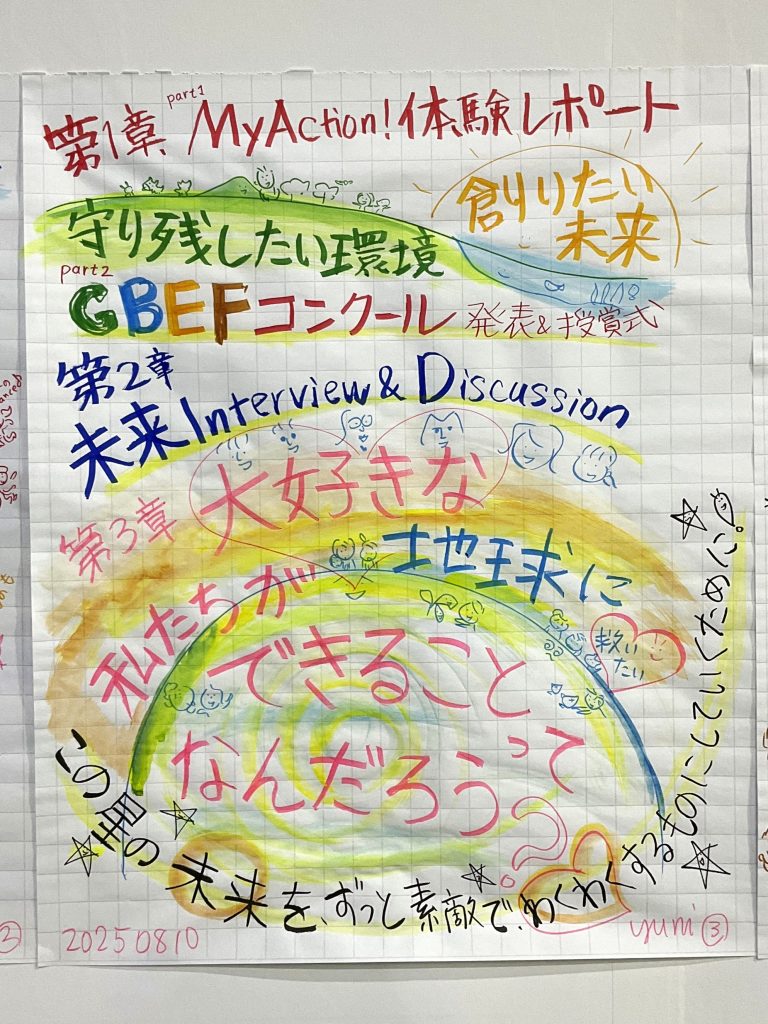 part1
第1章 MyAction!体験レポート
創りたい
未来
守り残したい環境
part2
GBEFコンクール 発表&授賞式
第2章
未来Interview&Discussion
第3章 大好きな
地球に
私たちが
できること
なんだろうって?
救い
たい
この星の未来を、ずっと素敵で、わくわくするものにしていくために。
20250810
yumi ③